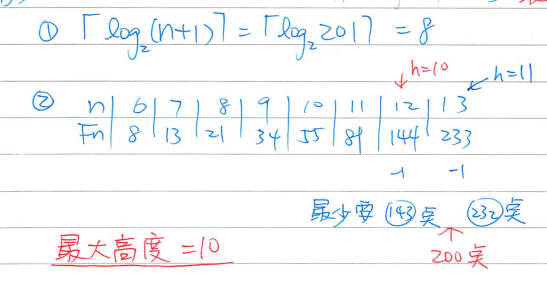 ① ⌈log₂(n+1)⌉ = ⌈log₂201⌉ = 8
h=10 h=11
② n | 6 | 7 | 8 | 9 | 10 | 11 | 12 | 13
Fn | 8 | 13 | 21 | 34 | 55 | 89 | 144 | 233
-1 -1
最少要 143 点 232 点
最大高度 = 10
200 点